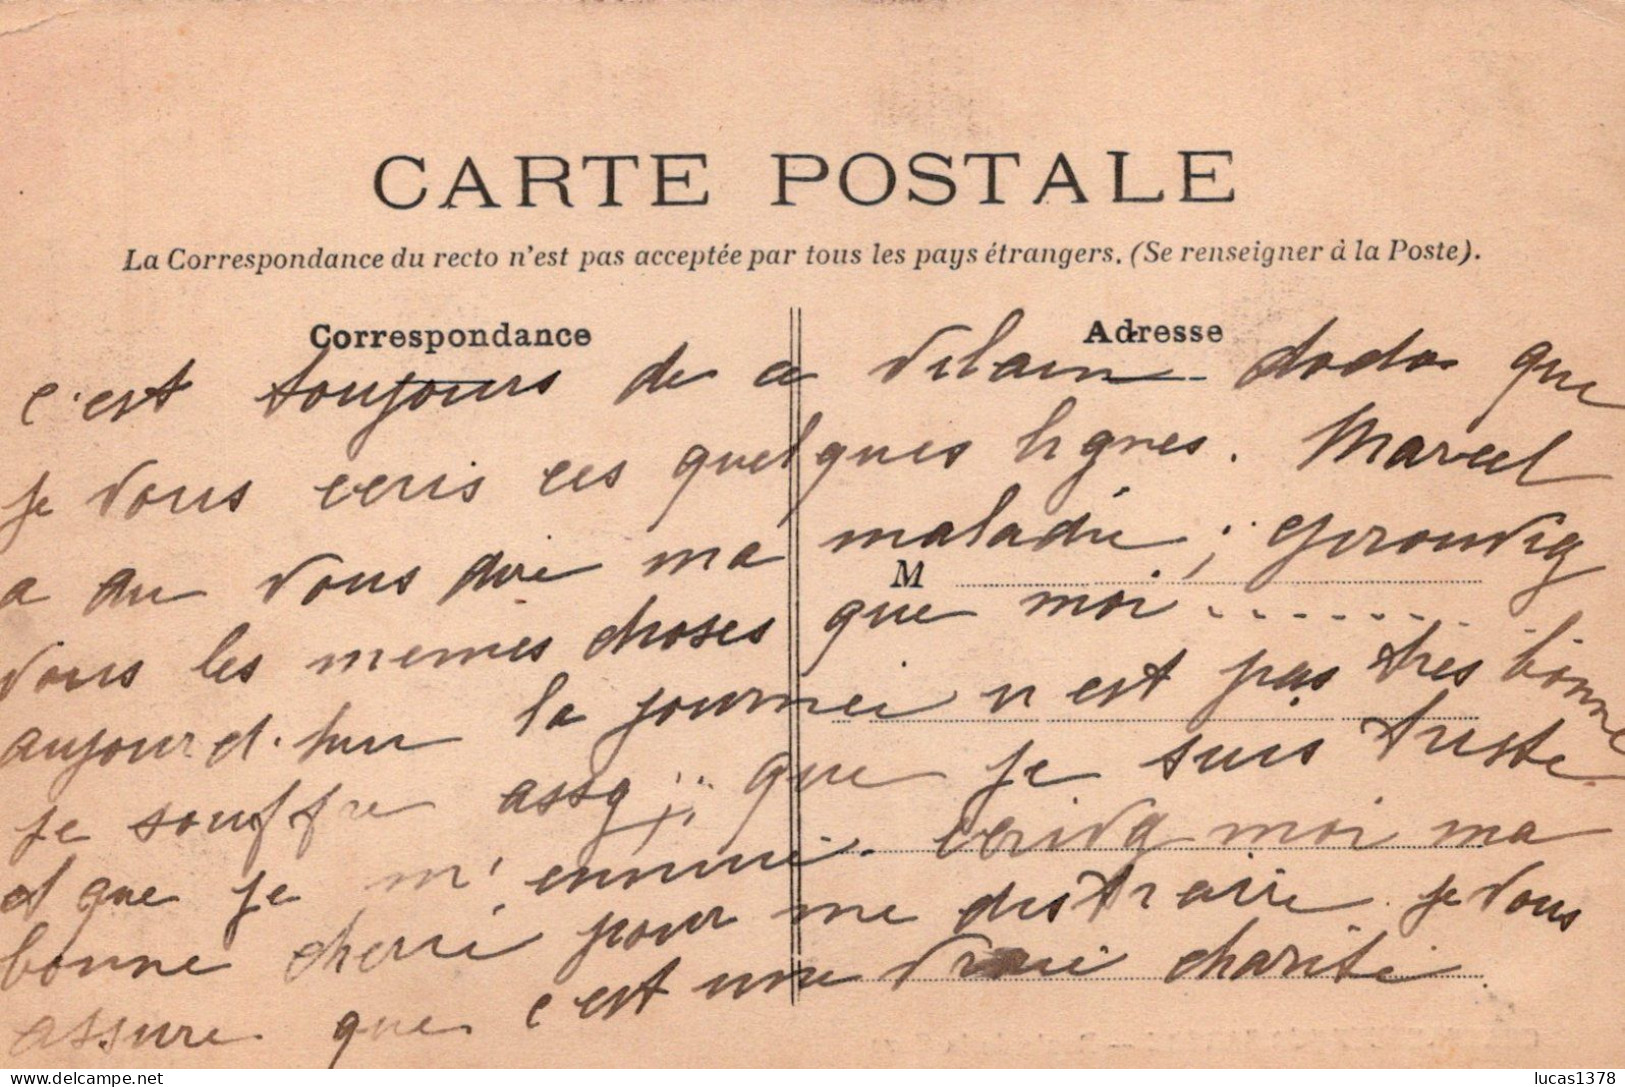 CARTE POSTALE
La Correspondance du recto n'est pas acceptée par tous les pays étrangers. (Se renseigner à la Poste).
Correspondance
Adresse
c'est toujours de ce vilain dodo que
je vous ecris ces quelques lignes. Marcel
a du vous dire ma maladie ;
M
vous les memes choses que moi.......
aujourd'hui la journée n'est pas très bonne
je souffre assez ; que je suis triste
et que je m'ennuie. ecrivez moi ma
bonne cherie pour me distraire. je vous
assure que c'est une vraie charité.
lucas1378